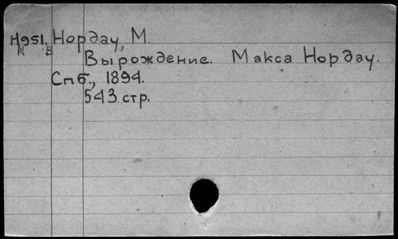 Н951. Нордау, М.
Вырождение. Макса Нордау.
Спб., 1894.
543 стр.